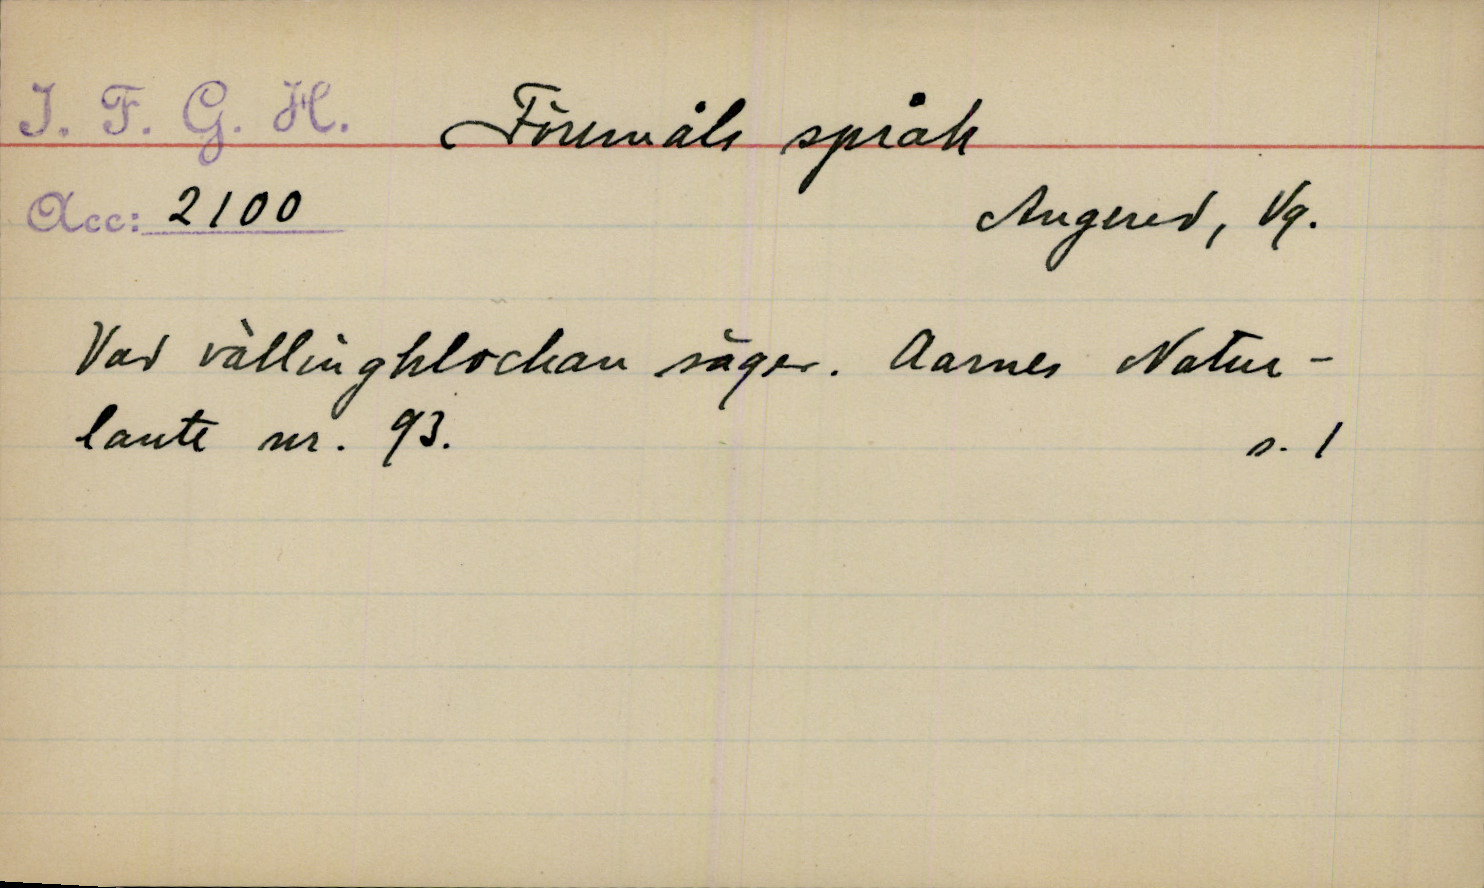 I. F. G. H. Föremåls språk
Acc: 2100 Angered, Vg.
Vad vällingklockan säger. Aarnes Natur-
laute nr. 93. s. 1